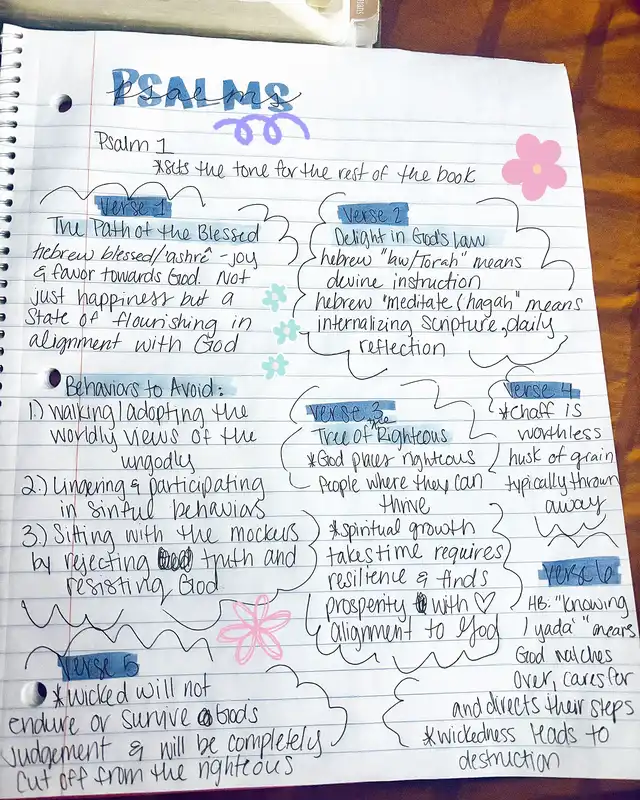 PSALMS
psalms
Psalm 1
*sets the tone for the rest of the book
Verse 1
The Path of the Blessed
hebrew blessed/'ashrê - joy
& favor towards God. Not
just happiness but a
state of flourishing in
alignment with God
Behaviors to Avoid:
1.) walking/adopting the
worldly views of the
ungodly
2.) Lingering & participating
in sinful behaviors
3.) Sitting with the mockers
by rejecting truth and
resisting God
Verse 2
Delight in God's Law
hebrew "law/Torah" means
devine instruction
hebrew "meditate/hagah" means
internalizing scripture, daily
reflection
Verse 3
Tree of the Righteous
*God places righteous
people where they can
thrive
*spiritual growth
takes time requires
resilience & finds
prosperity with ♡
alignment to God
Verse 4
*chaff is
worthless
husk of grain
typically thrown
away
Verse 5
*wicked will not
endure or survive Gods
judgement & will be completely
cut off from the righteous
Verse 6
HB: "knowing
/yada'" means
God watches
over, cares for
and directs their steps
*wickedness leads to
destruction